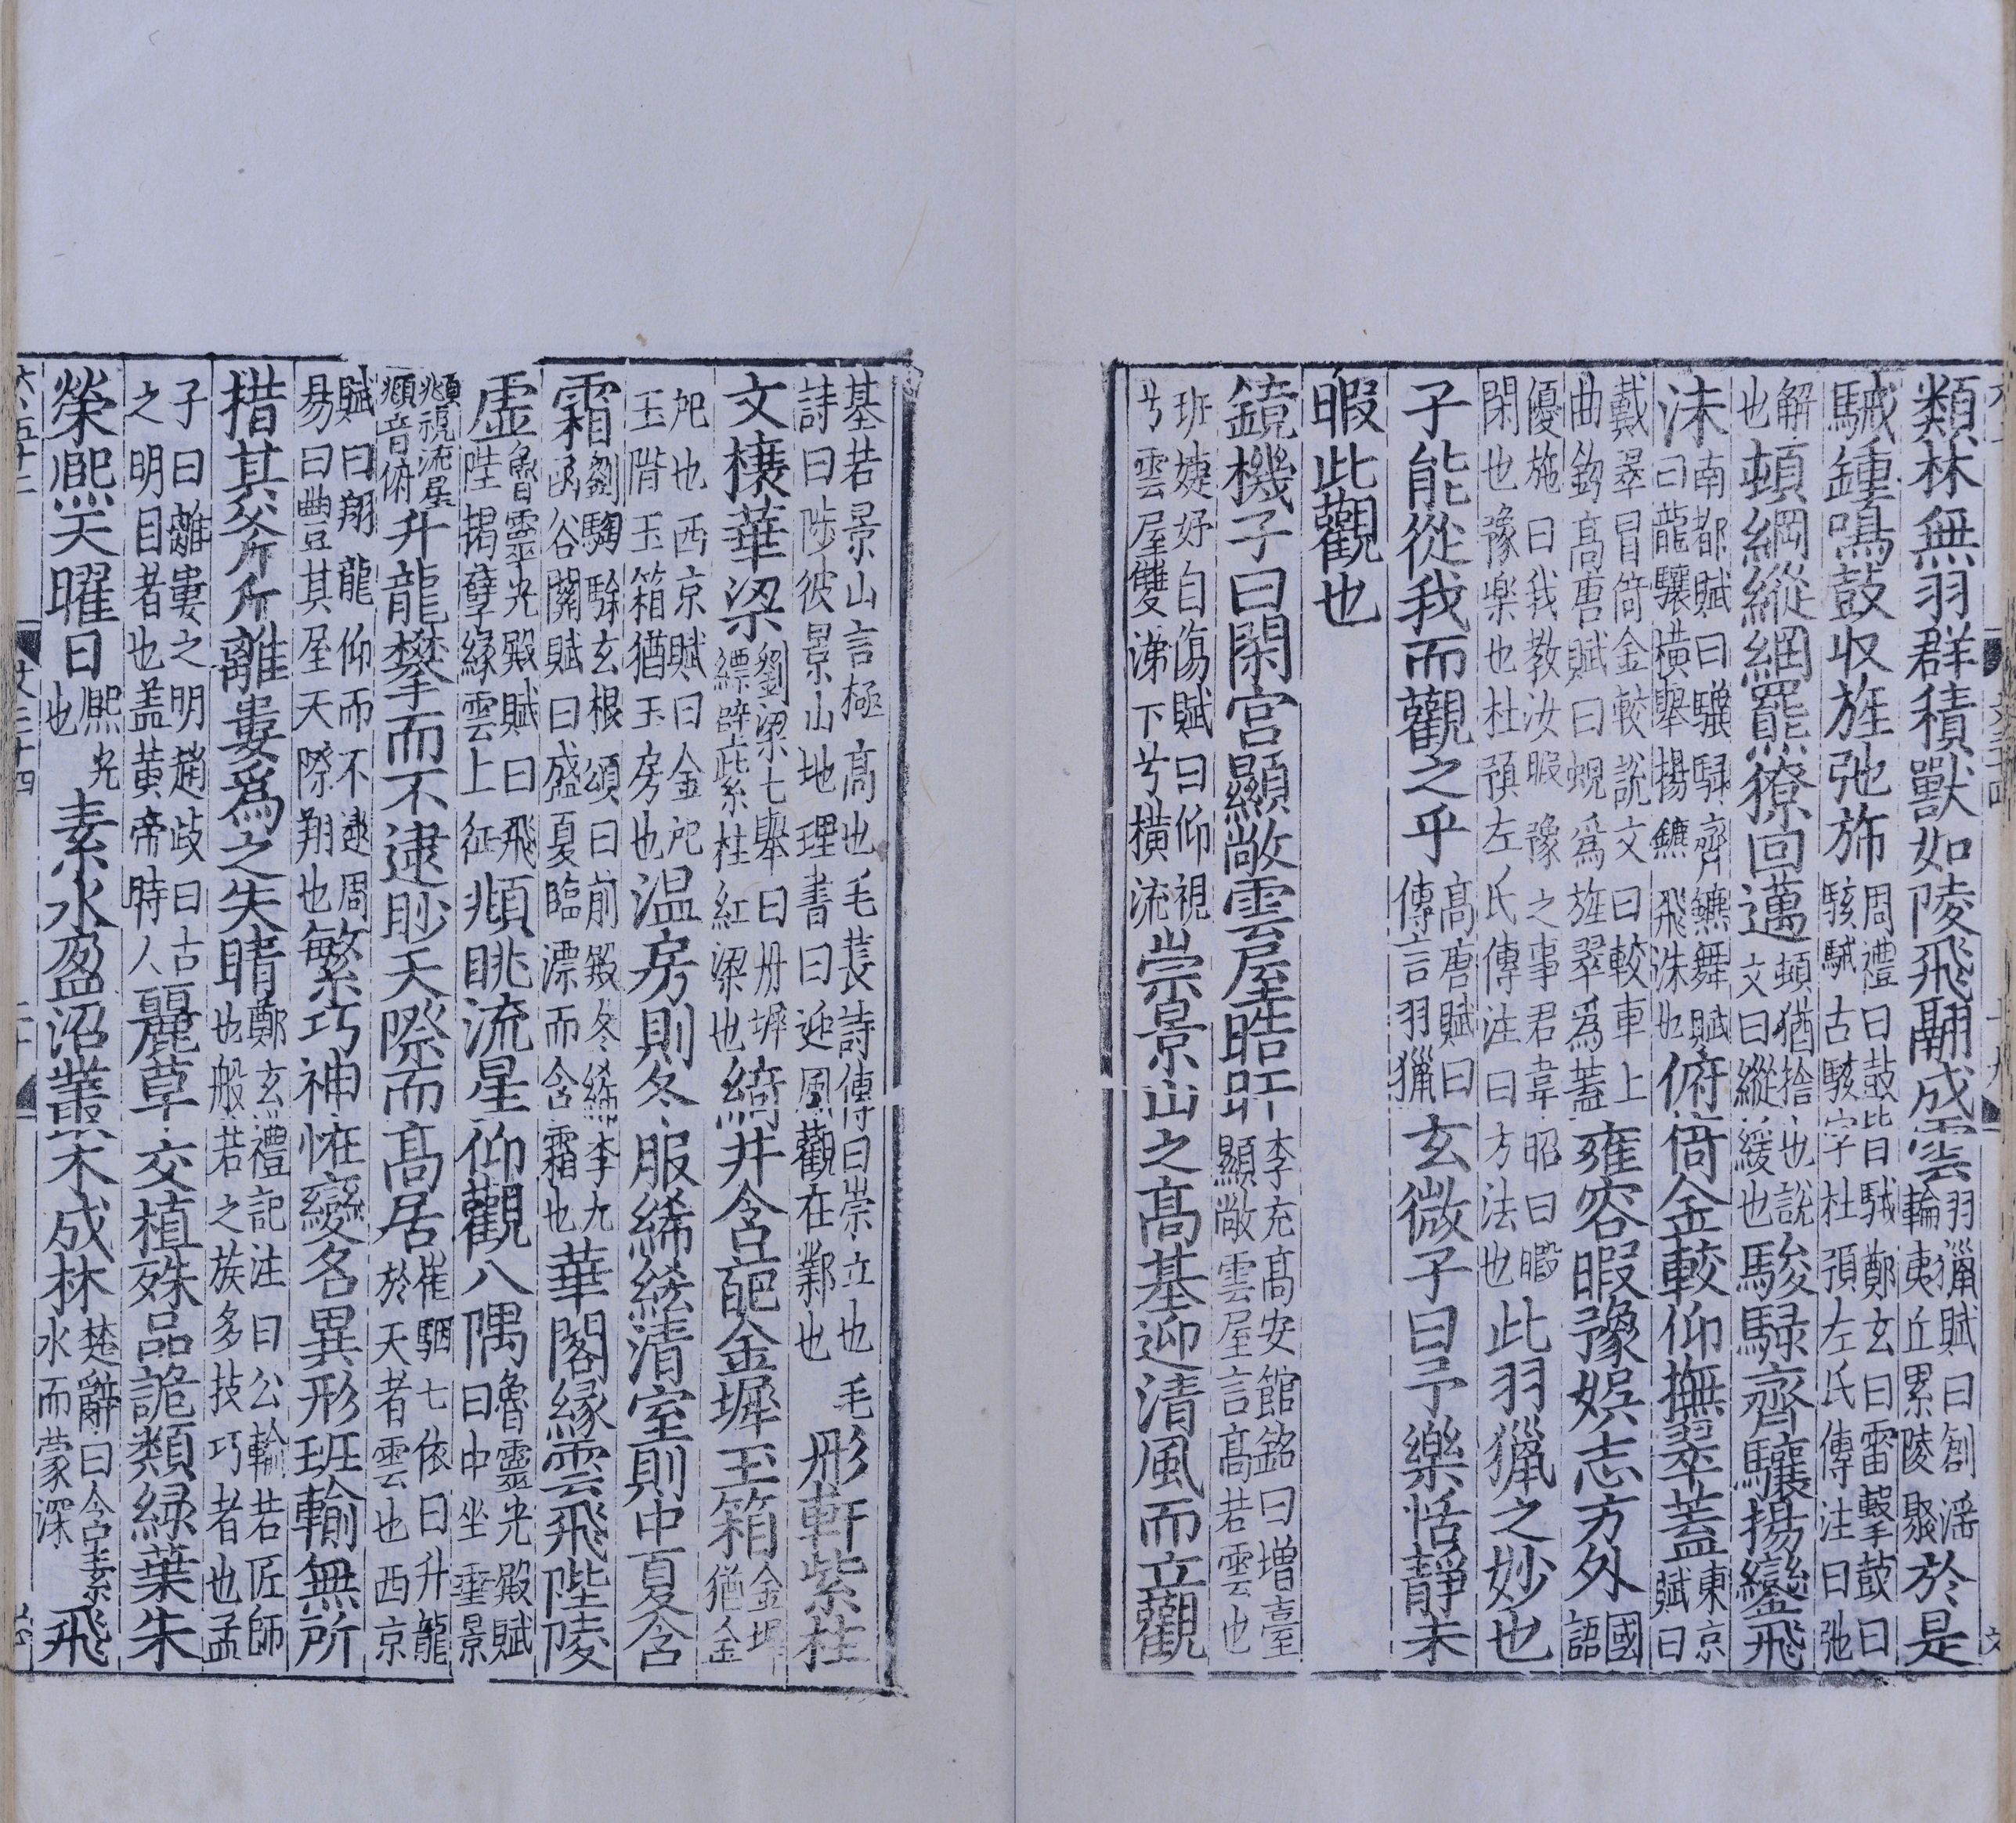 類林無羽群積獸如陵飛翮成雲羽獵賦曰創淫輪夷丘累陵聚於是
駴鍾鳴鼓収旌弛斾周禮曰鼓皆曰駴鄭玄曰雷擊鼓曰駭駴古駭字杜預左氏傳注曰弛
解也頓綱縱網羆獠回邁頓猶捨也說文曰縱緩也駿騄齊驤揚鑾飛
沫南都賦曰騄驥齊鑣舞賦曰龍驤橫舉揚鑣飛沫也俯倚金較仰撫翠蓋東京賦曰
戴翠冒倚金較說文曰較車上曲鉤高唐賦曰蜺爲旌翠爲蓋雍容暇豫娛志方外國語
優施曰我教汝暇豫之事君韋昭曰暇閑也豫樂也杜預左氏傳注曰方法也此羽獵之妙也
子能從我而觀之乎高唐賦曰傳言羽獵玄微子曰予樂恬靜未
暇此觀也
鏡機子曰閑宮顯敞雲屋晧旰李充高安館銘曰增臺顯敞雲屋言高若雲也
班婕妤自傷賦曰仰視兮雲屋雙涕下兮橫流崇景山之高基迎清風而立觀
基若景山言極高也毛萇詩傳曰崇立也毛詩曰陟彼景山地理書曰迎風觀在鄴也彤軒紫柱
文榱華梁劉梁七舉曰丹墀縹壁紫柱紅梁也綺井含葩金墀玉箱金墀猶金
戺也西京賦曰金戺玉階玉箱猶玉房也温房則冬服絺綌清室則中夏含
霜劉騊駼玄根頌曰前殿冬絺李尤函谷關賦曰盛夏臨漂而含霜也華閣緣雲飛陛陵
虛魯靈光殿賦曰飛陛揭孽緣雲上征頫眺流星仰觀八隅魯靈光殿賦曰中坐垂景
頫視流星頫音俯升龍攀而不逮眇天際而高居崔駰七依曰升龍於天者雲也西京
賦曰翔龍仰而不逮周易曰豐其屋天際翔也繁巧神恠變名異形班輸無所
措其斧斤離婁爲之失睛鄭玄禮記注曰公輸若匠師也般若之族多技巧者也孟
子曰離婁之明趙歧曰古之明目者也盖黃帝時人麗草交植殊品詭類綠葉朱
榮熈天曜日熈光也素水盈沼叢木成林楚辭曰含素水而蒙深飛